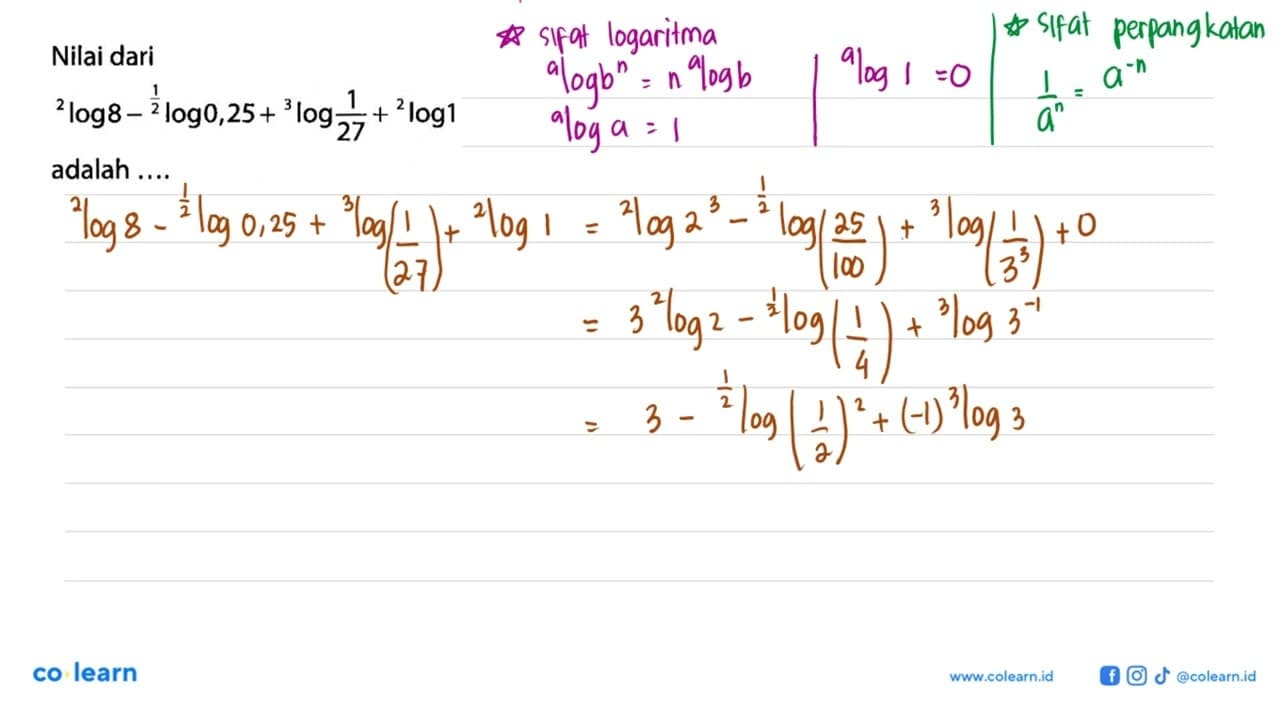 Nilai dari
²log8 − ^(1/2)log0,25 + ³log 1/27 + ²log1
adalah ....
☆ sifat logaritma
ᵃlog bⁿ = n ᵃlog b
ᵃlog a = 1
ᵃlog 1 = 0
☆ sifat perpangkatan
1/aⁿ = a⁻ⁿ
²log 8 − ^(1/2)log 0,25 + ³log(1/27) + ²log 1 = ²log 2³ − ^(1/2)log(25/100) + ³log(1/3³) + 0
= 3 ²log 2 − ^(1/2)log(1/4) + ³log 3⁻¹
= 3 − ^(1/2)log(1/2)² + (-1) ³log 3
co learn
www.colearn.id
@colearn.id